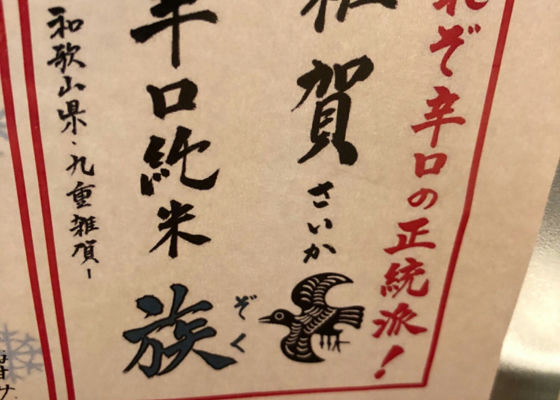 れぞ辛口の正統派!
雑賀
さいか
辛口純米
族
ぞく
和歌山県・九重雑賀ー